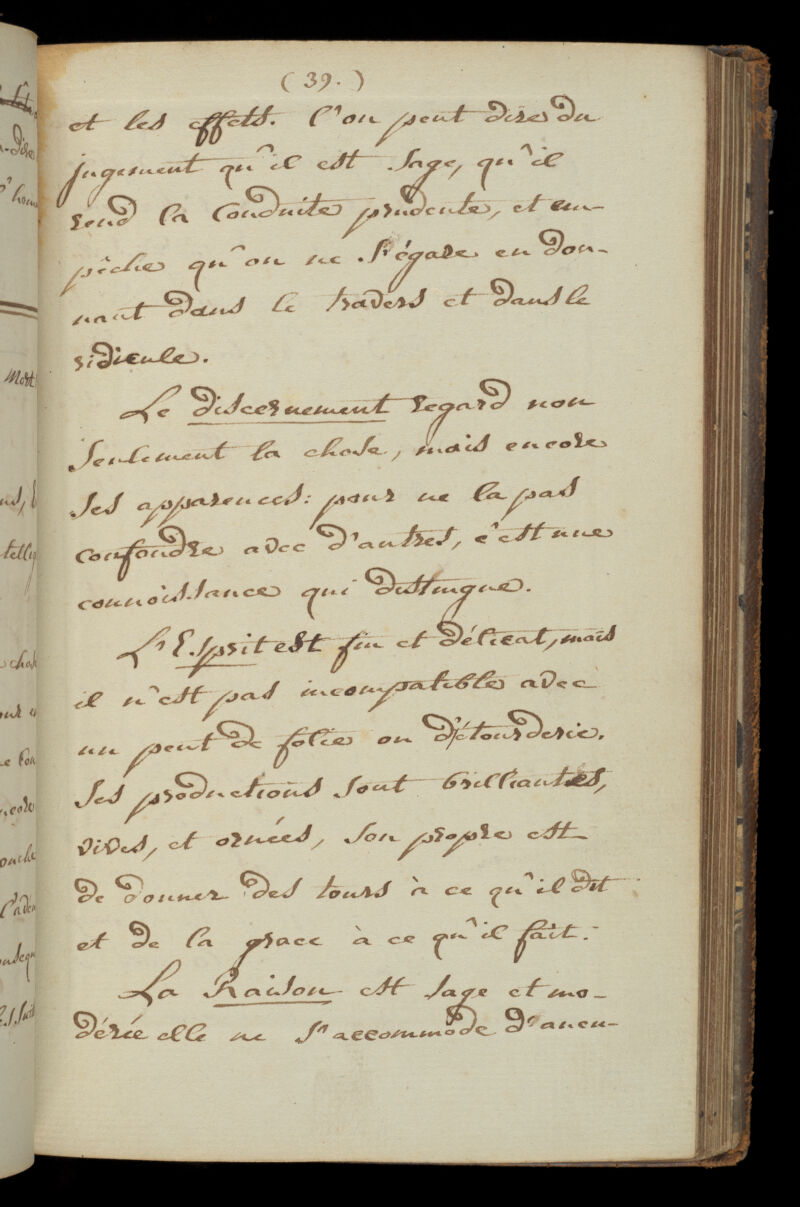 (39.)
et les effets. l'on peut dire du
jugement qu'il est sage, qu'il
rend la conduite prudente, et em-
pêche qu'on ne s'égare en don-
nant dans le travers et dans le
ridicule.
Le discernement regard non
seulement la chose, mais encore
ses apparences: pour ne la pas
confondre avec d'autres, c'est une
connoissance qui distingue.
L'Esprit est fin et délicat, mais
il n'est pas incompatible avec
un peut de folie ou d'étourderie.
Ses productions sont brilliantes,
vives, et ornées, son propre est
de donner des tours à ce qu'il dit
et de la grace à ce qu'il fait.
La Raison est sage et mo-
dérée elle ne s'accommôde d'aucu-